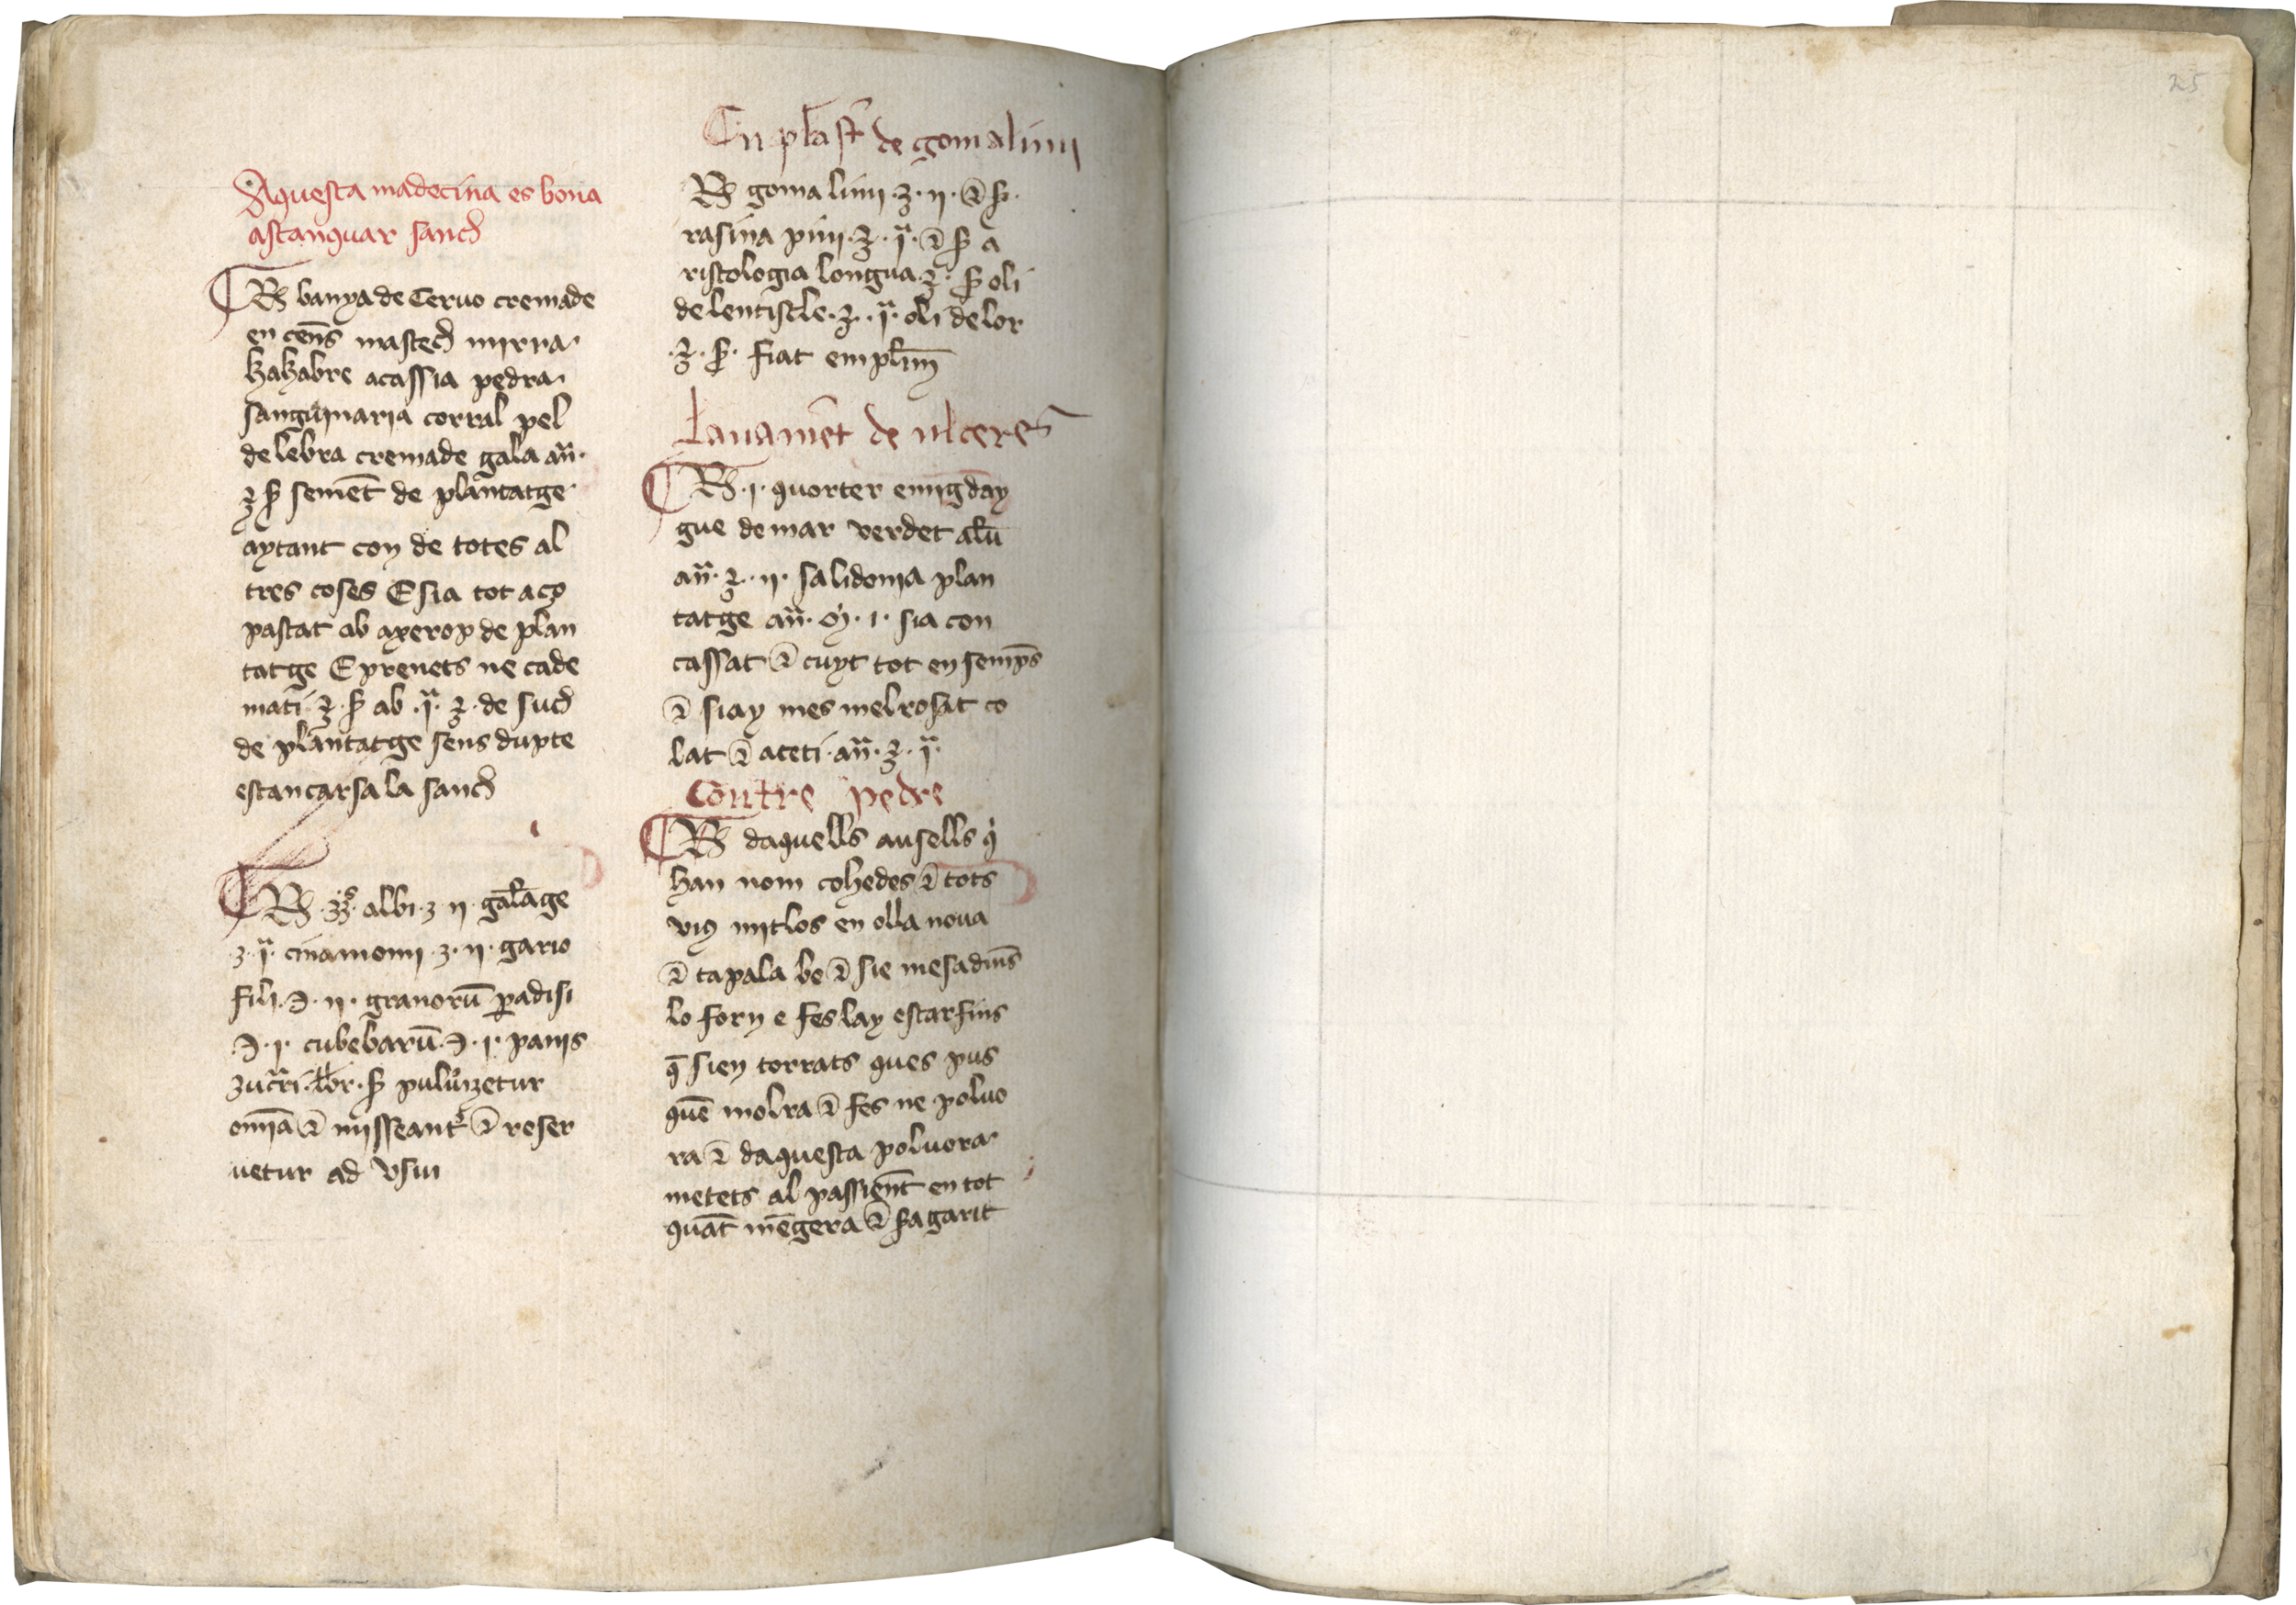 Aquesta madecina es bona
astanquar sanch
℞ banya de Ceruo cremade
en cens̄ mastech mirra
kakabre acassia pedra
sanguinaria corral pel
de lebra cremade gala an̄.
℥ ß semēt de plantatge
aytant con de totes al
tres coses E sia tot aço
pastat ab axerop de plan
tatge E prenets ne cade
mati ℥ ß ab .j. ℥ de such
de plantatge sens dupte
estancarsa la sanch
℞ albi ʒ ij galāge
ʒ j cinamomi ʒ ij gario
fili ℈ ij granorū ꝑadisi
℈ j cubebarū ℈ j panis
zucri ß puluizetur
omīa ⁊ misseant ⁊ reser
uetur ad vsm
Enplast de gomalimi
℞ goma limi ʒ ij ⁊ ß
rasina pini ℥ j ⁊ ß a
ristologia longua ℥ ß oli
de lentiscle ℥ j oli de lor
℥ ß fiat emplm̄
Lauamēt de ulceres
℞ j quorter emig day
gue de mar verdet alū
an̄ ℥ ij salidonia plan
tatge an̄ m̊ j sia con
cassat ⁊ cuyt tot ensemps
⁊ siay mes melrosat co
lat ⁊ aceti an̄ ℥ j
Contre pedre
℞ daquells ausells q̇
han nom cohedes ⁊ tots
viꝯ mitlos en olla noua
⁊ tapala be ⁊ sie mesadīs
lo forn e fes lay estar fins
q̄ sien torrats ques pus
quē molra ⁊ fes ne poluo
ra ⁊ daquesta poluora
metets al passient en tot
quāt mēgera ⁊ ßa garit
25